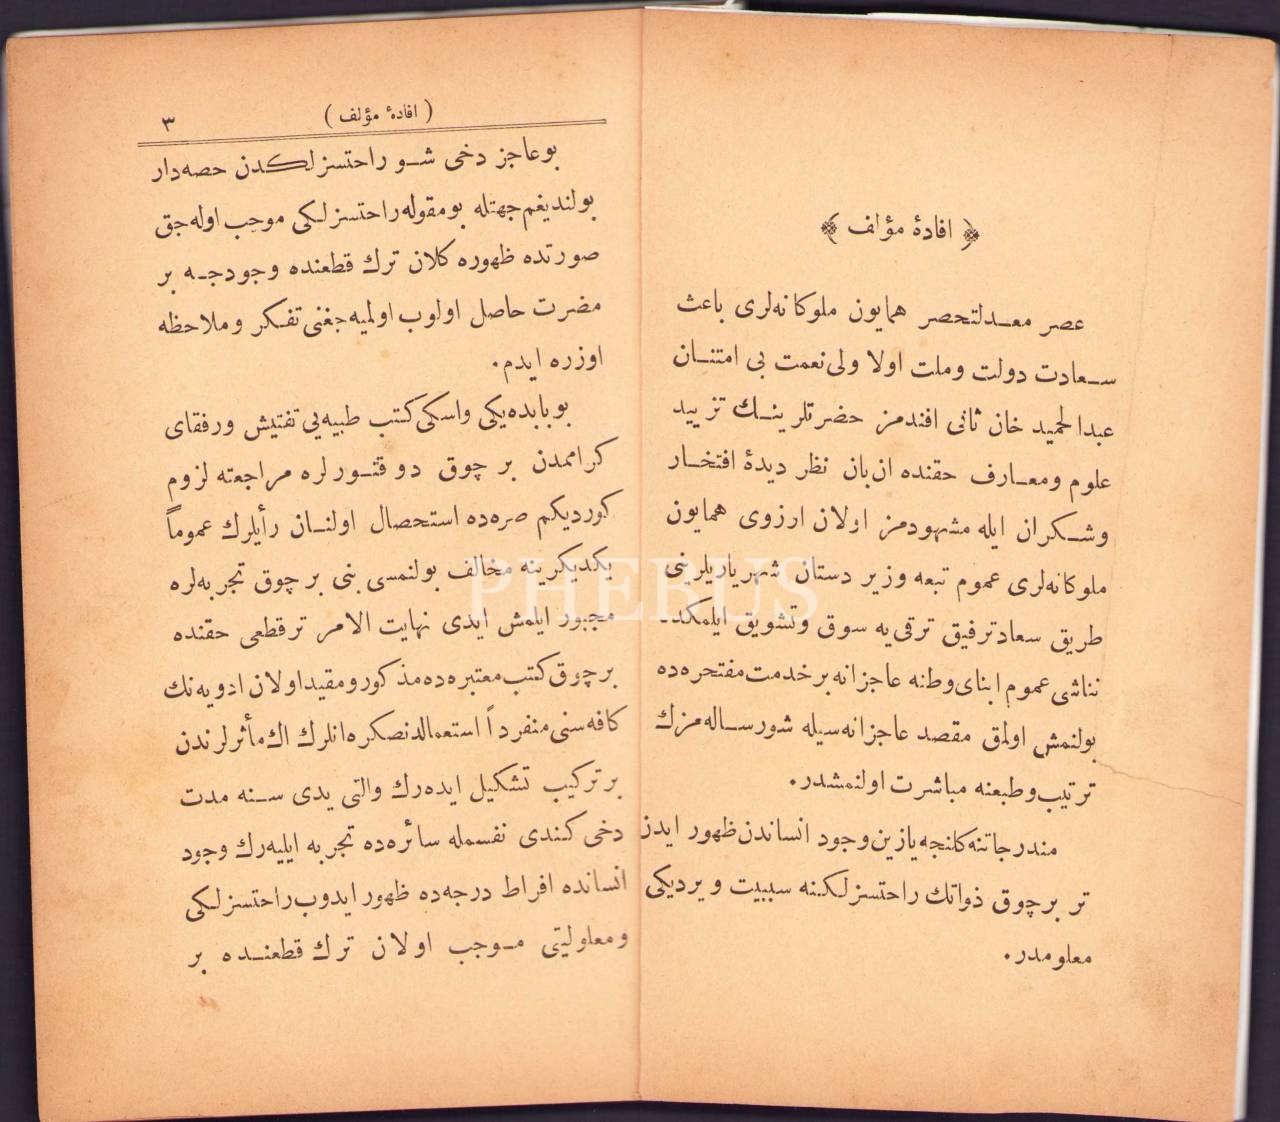 ﴿ افادهٔ مؤلف ﴾
عصر معدلتحصر همايون ملوكانه‌لرى باعث
سعادت دولت وملت اولا ولى نعمت بى امتنان
عبدالحميد خان ثانى افندمز حضرتلرينك تزييد
علوم ومعارف حقنده ان‌بان نظر ديدهٔ افتخار
وشكران ايله مشهودمز اولان ارزوى همايون
ملوكانه‌لرى عموم تبعه وزير دستان شهرياريلرينى
طريق سعادترفيق ترقى‌يه سوق وتشويق ايلمكد
نناشى عموم ابناى وطنه عاجزانه بر خدمت مفتخره‌ده
بولنمش اولمق مقصد عاجزانه‌سيله شو رساله‌مزك
ترتيب وطبعنه مباشرت اولنمشدر.
مندرجاتنه كلنجه يازين وجود انساندن ظهور ايدن
تر بر چوق ذواتك راحتسزلكنه سببيت ويرديكى
معلومدر.
( افادهٔ مؤلف )
٣
بو عاجز دخى شو راحتسزلكدن حصه‌دار
بولنديغم جهتله بومقوله راحتسزلكى موجب اوله‌جق
صورتده ظهوره كلان ترك قطعنده وجودجه بر
مضرت حاصل اولوب اولميه‌جغنى تفكر وملاحظه
اوزره ايدم.
بوبابده‌يكى واسكى كتب طبيه‌يى تفتيش ورفقاى
كرامدن بر چوق دوقتورلره مراجعته لزوم
كورديكم صره‌ده استحصال اولنان رأيلرك عموماً
يكديكرينه مخالف بولنمسى بنى بر چوق تجربه‌لره
مجبور ايلمش ايدى نهايت الامر تر قطعى حقنده
بر چوق كتب معتبره‌ده مذكور ومقيد اولان ادويه‌نك
كافه‌سنى منفرداً استعمالدنصكره انلرك اك مأثرلرندن
بر تركيب تشكيل ايده‌رك والتى يدى سنه مدت
دخى كندى نفسمله سائره‌ده تجربه ايليه‌رك وجود
انسانده افراط درجه‌ده ظهور ايدوب راحتسزلكى
ومعلوليتى موجب اولان ترك قطعنده بر
PHEBUS